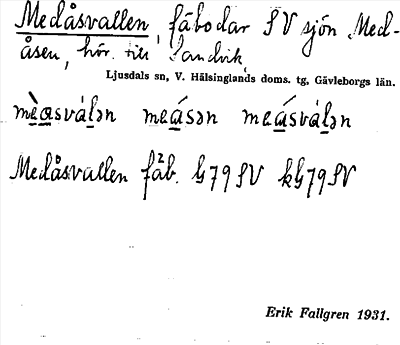 Medåsvallen, fäbodar SV sjön Med-
åsen, hör. till Sandvik,
Ljusdals sn, V. Hälsinglands doms. tg, Gävleborgs län.
mèasválən meásən meásválən
Medåsvallen fäb. G79SV kG79SV
Erik Fallgren 1931.